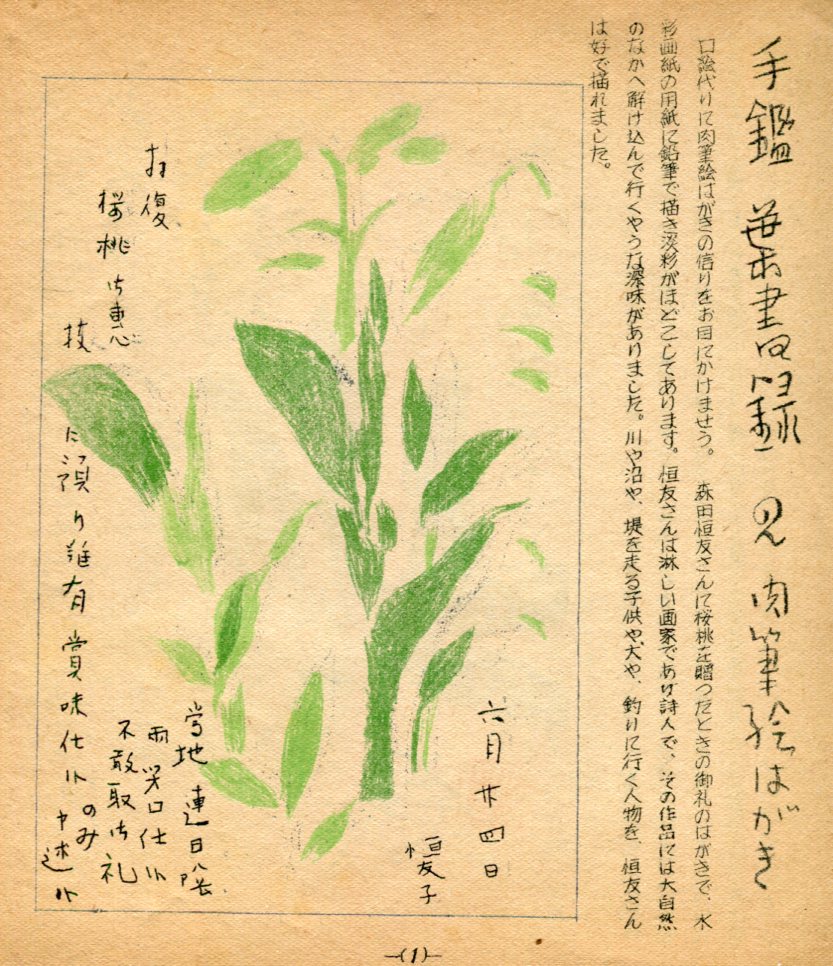 手鑑 葉書回録 の 肉筆絵はがき
口絵代りに肉筆絵はがきの信りをお目にかけませう。 森田恒友さんに桜桃を贈つたときの御礼のはがきで、水
彩画紙の用紙に鉛筆で描き淡彩がほどこしてあります。恒友さんは淋しい画家であり詩人で、その作品には大自然
のなかへ解け込んで行くやうな深味がありました。川や沼や、堤を走る子供や犬や、釣りに行く人物を、恒友さん
は好で描れました。
拝復
桜桃御恵
投
に預り難有賞味仕候
のみ
申述候
当地連日降
雨閉口仕候
不敢取御礼
六月廿四日
恒友子
(1)